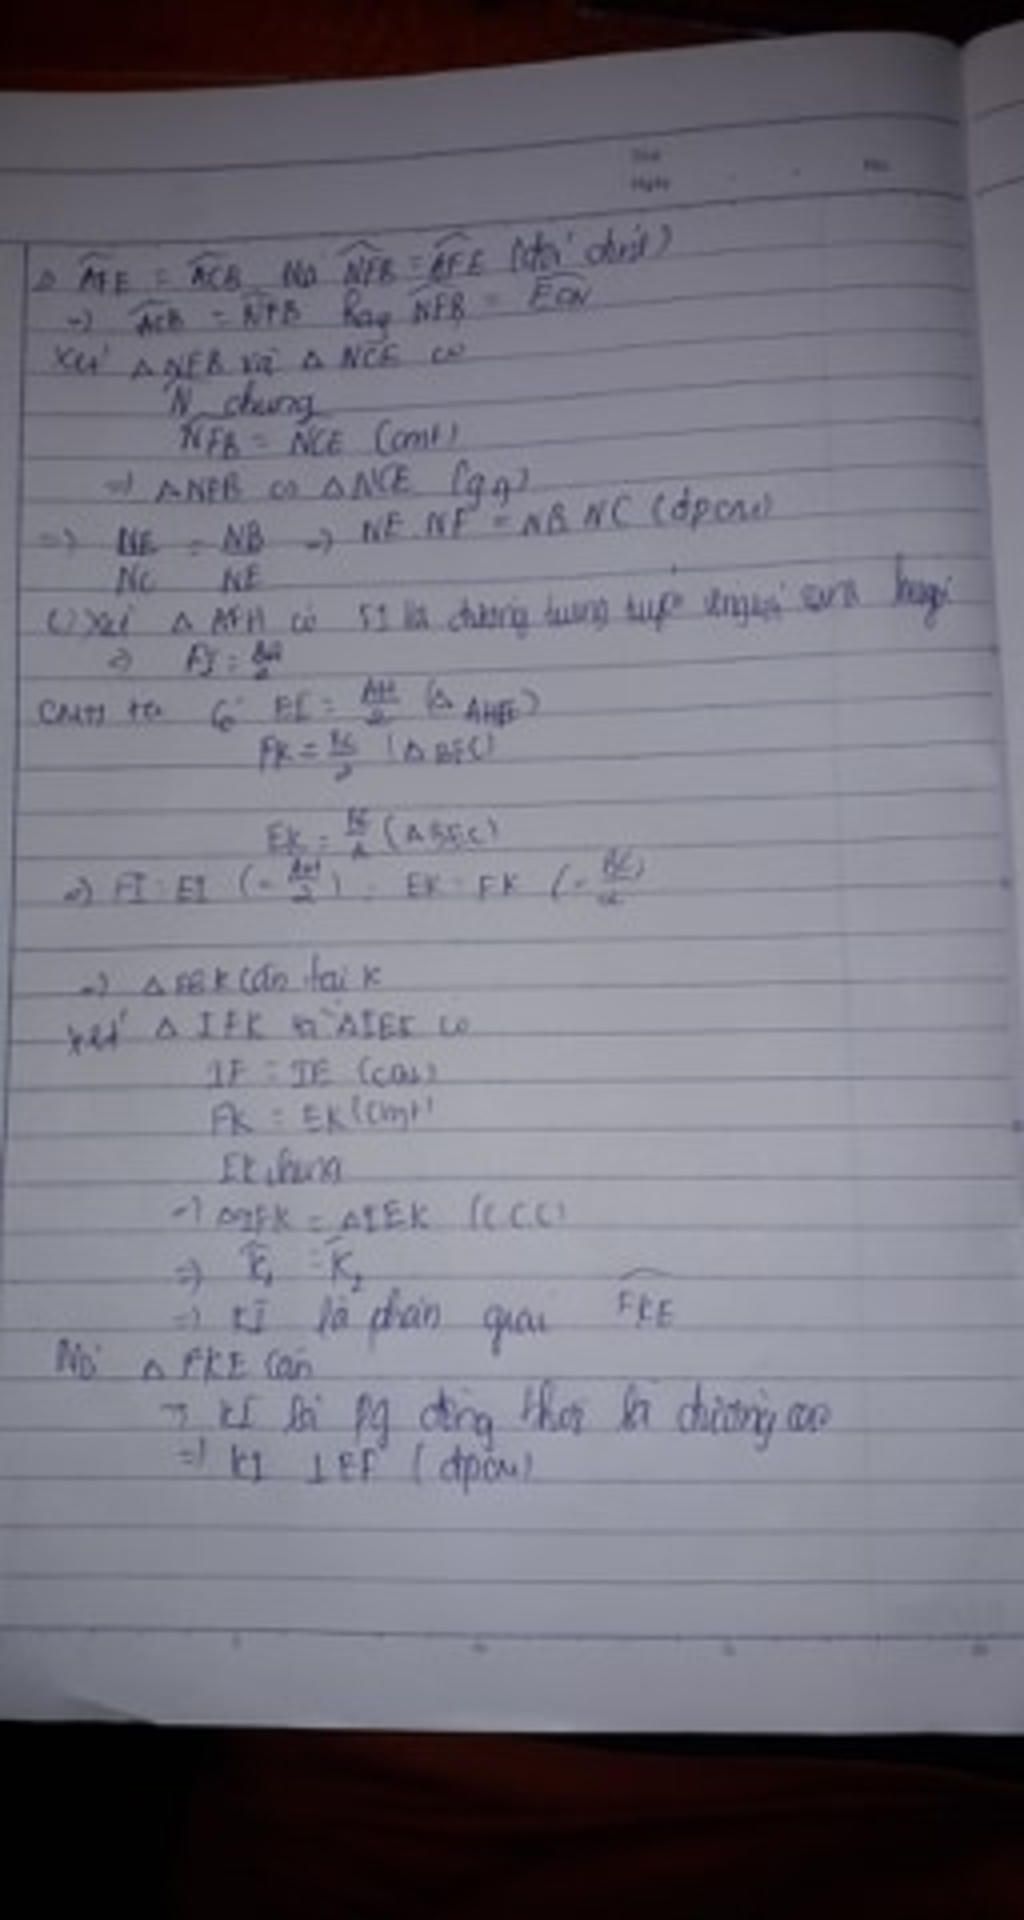 ⇒ AFE = ACB Mà NFB = AFE (đối đỉnh)
⇒ ACB = NFB Hay NFB = ECN
Xét Δ NFB và Δ NCE có
N chung
NFB = NCE (cmt)
⇒ Δ NFB ∽ Δ NCE (g.g)
⇒ NF/NC = NB/NE ⇒ NE.NF = NB.NC (đpcm)
c) Xét Δ AFH có FI là đường trung tuyến ứng
⇒ FI = AH/2
CMTT ta có EI = AH/2 (Δ AHE)
FK = BC/2 (Δ BFC)
EK = BC/2 (Δ BEC)
⇒ FI = EI (= AH/2) . EK = FK (= BC/2)
⇒ Δ FEK cân tại K
Xét Δ IFK và Δ IEK có
IF = IE (cmt)
FK = EK (cmt)
IK chung
⇒ Δ IFK = Δ IEK (CCC)
⇒ K₁ = K₂
⇒ KI là phân giác FKE
Mà Δ FKE cân
⇒ KI là pg đồng thời là đường cao
⇒ KI ⊥ EF (đpcm)